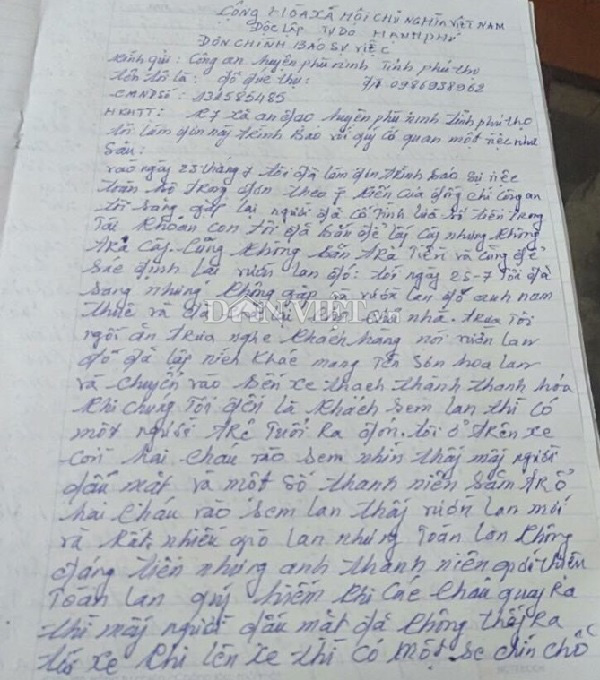 CỘNG HÒA XÃ HỘI CHỦ NGHĨA VIỆT NAM
ĐỘC LẬP TỰ DO HẠNH PHÚ
ĐƠN CHÌNH BÁO SỰ VIỆC
Kính gửi: Công an huyện phù ninh Tỉnh phú thọ
tên tôi là: đỗ đức thụ: 0986938962
CMNDSố: 131585485
HKHTT: K7 xã an đạo huyện phù ninh tỉnh phú thọ
tôi làm đơn này trình Báo với quý cơ quan một việc như
Sau:
vào ngày 23 tháng 7 tôi đã làm đơn trình báo sự việc
trên Đơn theo ý kiến của đồng chí Công an
tôi sang gặp lại người đã cố tình lừa số tiền trong
Tài Khoản con tôi đã bán để lấy Cây nhưng không
trả Cây. Cũng không trả Tiền và cũng để
sác định lại vườn lan đó: tới ngày 25-7 Tôi đã
sang nhưng không gặp và vườn lan đó anh nam
thuê và đã trả lại cho chủ nhà. trưa tôi
ngồi ăn trưa nghe khách hàng nói vườn lan
đó đã lập nich khác mang Tên Sơn hoa lan
và chuyển vào bến xe thach thành thanh hóa
khi chúng Tôi đến là khách sem lan thì có
một người trẻ tuổi ra đón. tôi ở trên xe
còn hai cháu vào sem nhìn thấy mấy người
dấu mặt và một số thanh niên săm trổ
hai cháu vào sem lan thấy vườn lan mới
và rất nhiều giò lan nhưng toàn lan không
đáng tiền nhưng anh thanh niên giới thiệu
Toàn lan quý hiếm khi các cháu quay ra
thì mấy người dấu mặt đã không thấy ra
tới xe khi lên xe thì có một se chắn chỗ
DÂN VIỆT